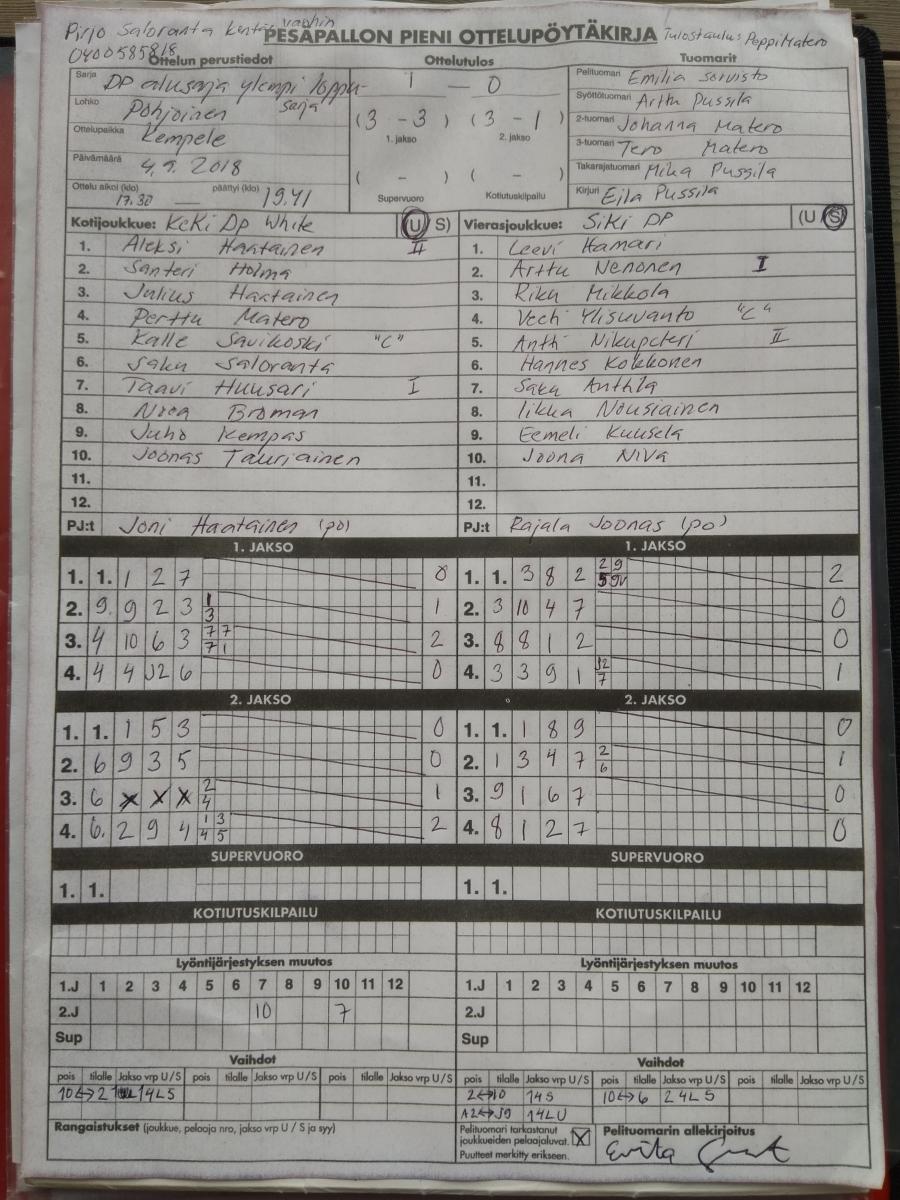 Pirjo Saloranta kenttävanhin
0400585818
PESÄPALLON PIENI OTTELUPÖYTÄKIRJA
Tulostaulu: Peppi Matero
Ottelun perustiedot
Ottelutulos
Tuomarit
Sarja DP alusarja ylempi loppusarja
Lohko Pohjoinen
Ottelupaikka Kempele
Päivämäärä 4.9.2018
Ottelu alkoi (klo) 17.30 päättyi (klo) 19.41
1 - 0
(3 - 3) (3 - 1)
1. jakso 2. jakso
( - ) ( - )
Supervuoro Kotiutuskilpailu
Pelituomari Emilia Sorvisto
Syöttötuomari Arttu Pussila
2-tuomari Johanna Matero
3-tuomari Tero Matero
Takarajatuomari Mika Pussila
Kirjuri Eila Pussila
Kotijoukkue: KeKi DP White (U S)
1. Aleksi Haatainen II
2. Santeri Holma
3. Julius Haatainen
4. Perttu Matero
5. Kalle Savikoski "C"
6. Saku Saloranta
7. Taavi Huusari I
8. Nooa Broman
9. Juho Kempas
10. Joonas Tauriainen
11.
12.
PJ:t Joni Haatainen (po)
Vierasjoukkue: SiKi DP (U S)
1. Leevi Hamari
2. Arttu Nenonen I
3. Riku Mikkola
4. Veeti Ylisuvanto "C"
5. Antti Nikupeteri II
6. Hannes Kokkonen
7. Saku Anttila
8. Iikka Nousiainen
9. Eemeli Kuusela
10. Joona Niva
11.
12.
PJ:t Rajala Joonas (po)
1. JAKSO
1. 1. 1 2 7 0
2. 9. 9 2 3 1 3 1
3. 4 10 6 3 7 7 7 1 2
4. 4 4 J2 6 0
1. JAKSO
1. 1. 3 8 2 2 9 5 9v 2
2. 3 10 4 7 0
3. 8 8 1 2 0
4. 3 3 9 1 J2 7 1
2. JAKSO
1. 1. 1 5 3 0
2. 6 9 3 5 0
3. 6 X X X 2 4 1
4. 6. 2 9 4 1 3 4 5 2
2. JAKSO
1. 1. 1 8 9 0
2. 1 3 4 7 2 6 1
3. 9 1 6 7 0
4. 8 1 2 7 0
SUPERVUORO
1. 1.
SUPERVUORO
1. 1.
KOTIUTUSKILPAILU
KOTIUTUSKILPAILU
Lyöntijärjestyksen muutos
1.J 1 2 3 4 5 6 7 8 9 10 11 12
2.J 10 7
Sup
Lyöntijärjestyksen muutos
1.J 1 2 3 4 5 6 7 8 9 10 11 12
2.J
Sup
Vaihdot
pois tilalle Jakso vrp U/S pois tilalle Jakso vrp U/S pois tilalle Jakso vrp U/S
10↔2 14LS
Vaihdot
pois tilalle Jakso vrp U/S pois tilalle Jakso vrp U/S pois tilalle Jakso vrp U/S
2↔10 14S 10↔6 24LS
A2↔J9 14LU
Rangaistukset (joukkue, pelaaja nro, jakso vrp U / S ja syy)
Pelituomari tarkastanut
joukkueiden pelaajaluvat. X
Puutteet merkitty erikseen.
Pelituomarin allekirjoitus